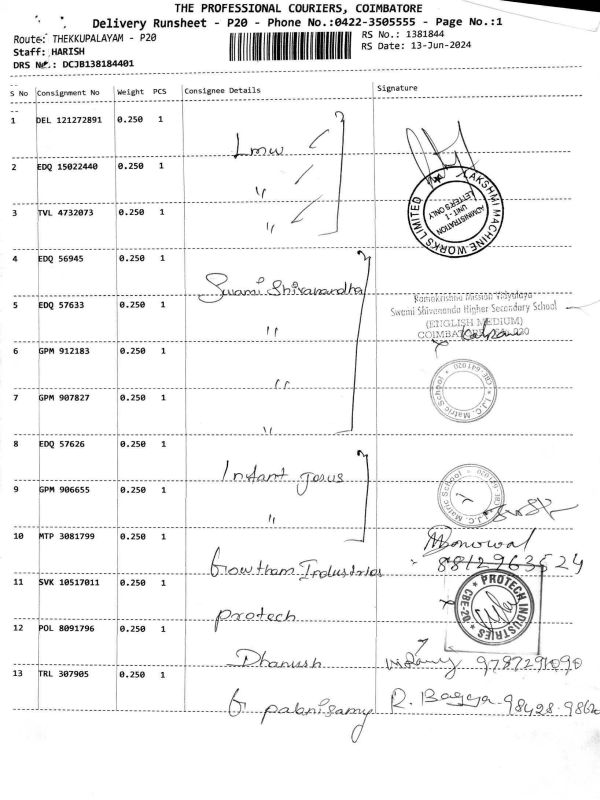 THE PROFESSIONAL COURIERS, COIMBATORE
Delivery Runsheet - P20 - Phone No.:0422-3505555 - Page No.:1
Route: THEKKUPALAYAM - P20
RS No.: 1381844
Staff: HARISH
RS Date: 13-Jun-2024
DRS No.: DCJB138184401
S No Consignment No Weight PCS Consignee Details Signature
1 DEL 121272891 0.250 1
Lmw
2 EDQ 15022440 0.250 1
"
3 TVL 4732073 0.250 1
"
LAKSHMI MACHINE WORKS LIMITED
ADMINISTRATION
UNIT - 1
LETTER'S ONLY
4 EDQ 56945 0.250 1
Swami Shivanandha
5 EDQ 57633 0.250 1
"
Ramakrishna Mission Vidyalaya
Swami Shivananda Higher Secondary School
(ENGLISH MEDIUM)
6 GPM 912183 0.250 1
"
7 GPM 907827 0.250 1
"
I.J.C. Matric School * CBE-641 020 *
8 EDQ 57626 0.250 1
Infant Jesus
9 GPM 906655 0.250 1
"
I.J.C. Matric School
10 MTP 3081799 0.250 1
Gowtham Industries
11 SVK 10517011 0.250 1
protech
* PROTECH INDUSTRIES * CBE-20
12 POL 8091796 0.250 1
Dhanush
9787291090
13 TRL 307905 0.250 1
G palanisamy
R.